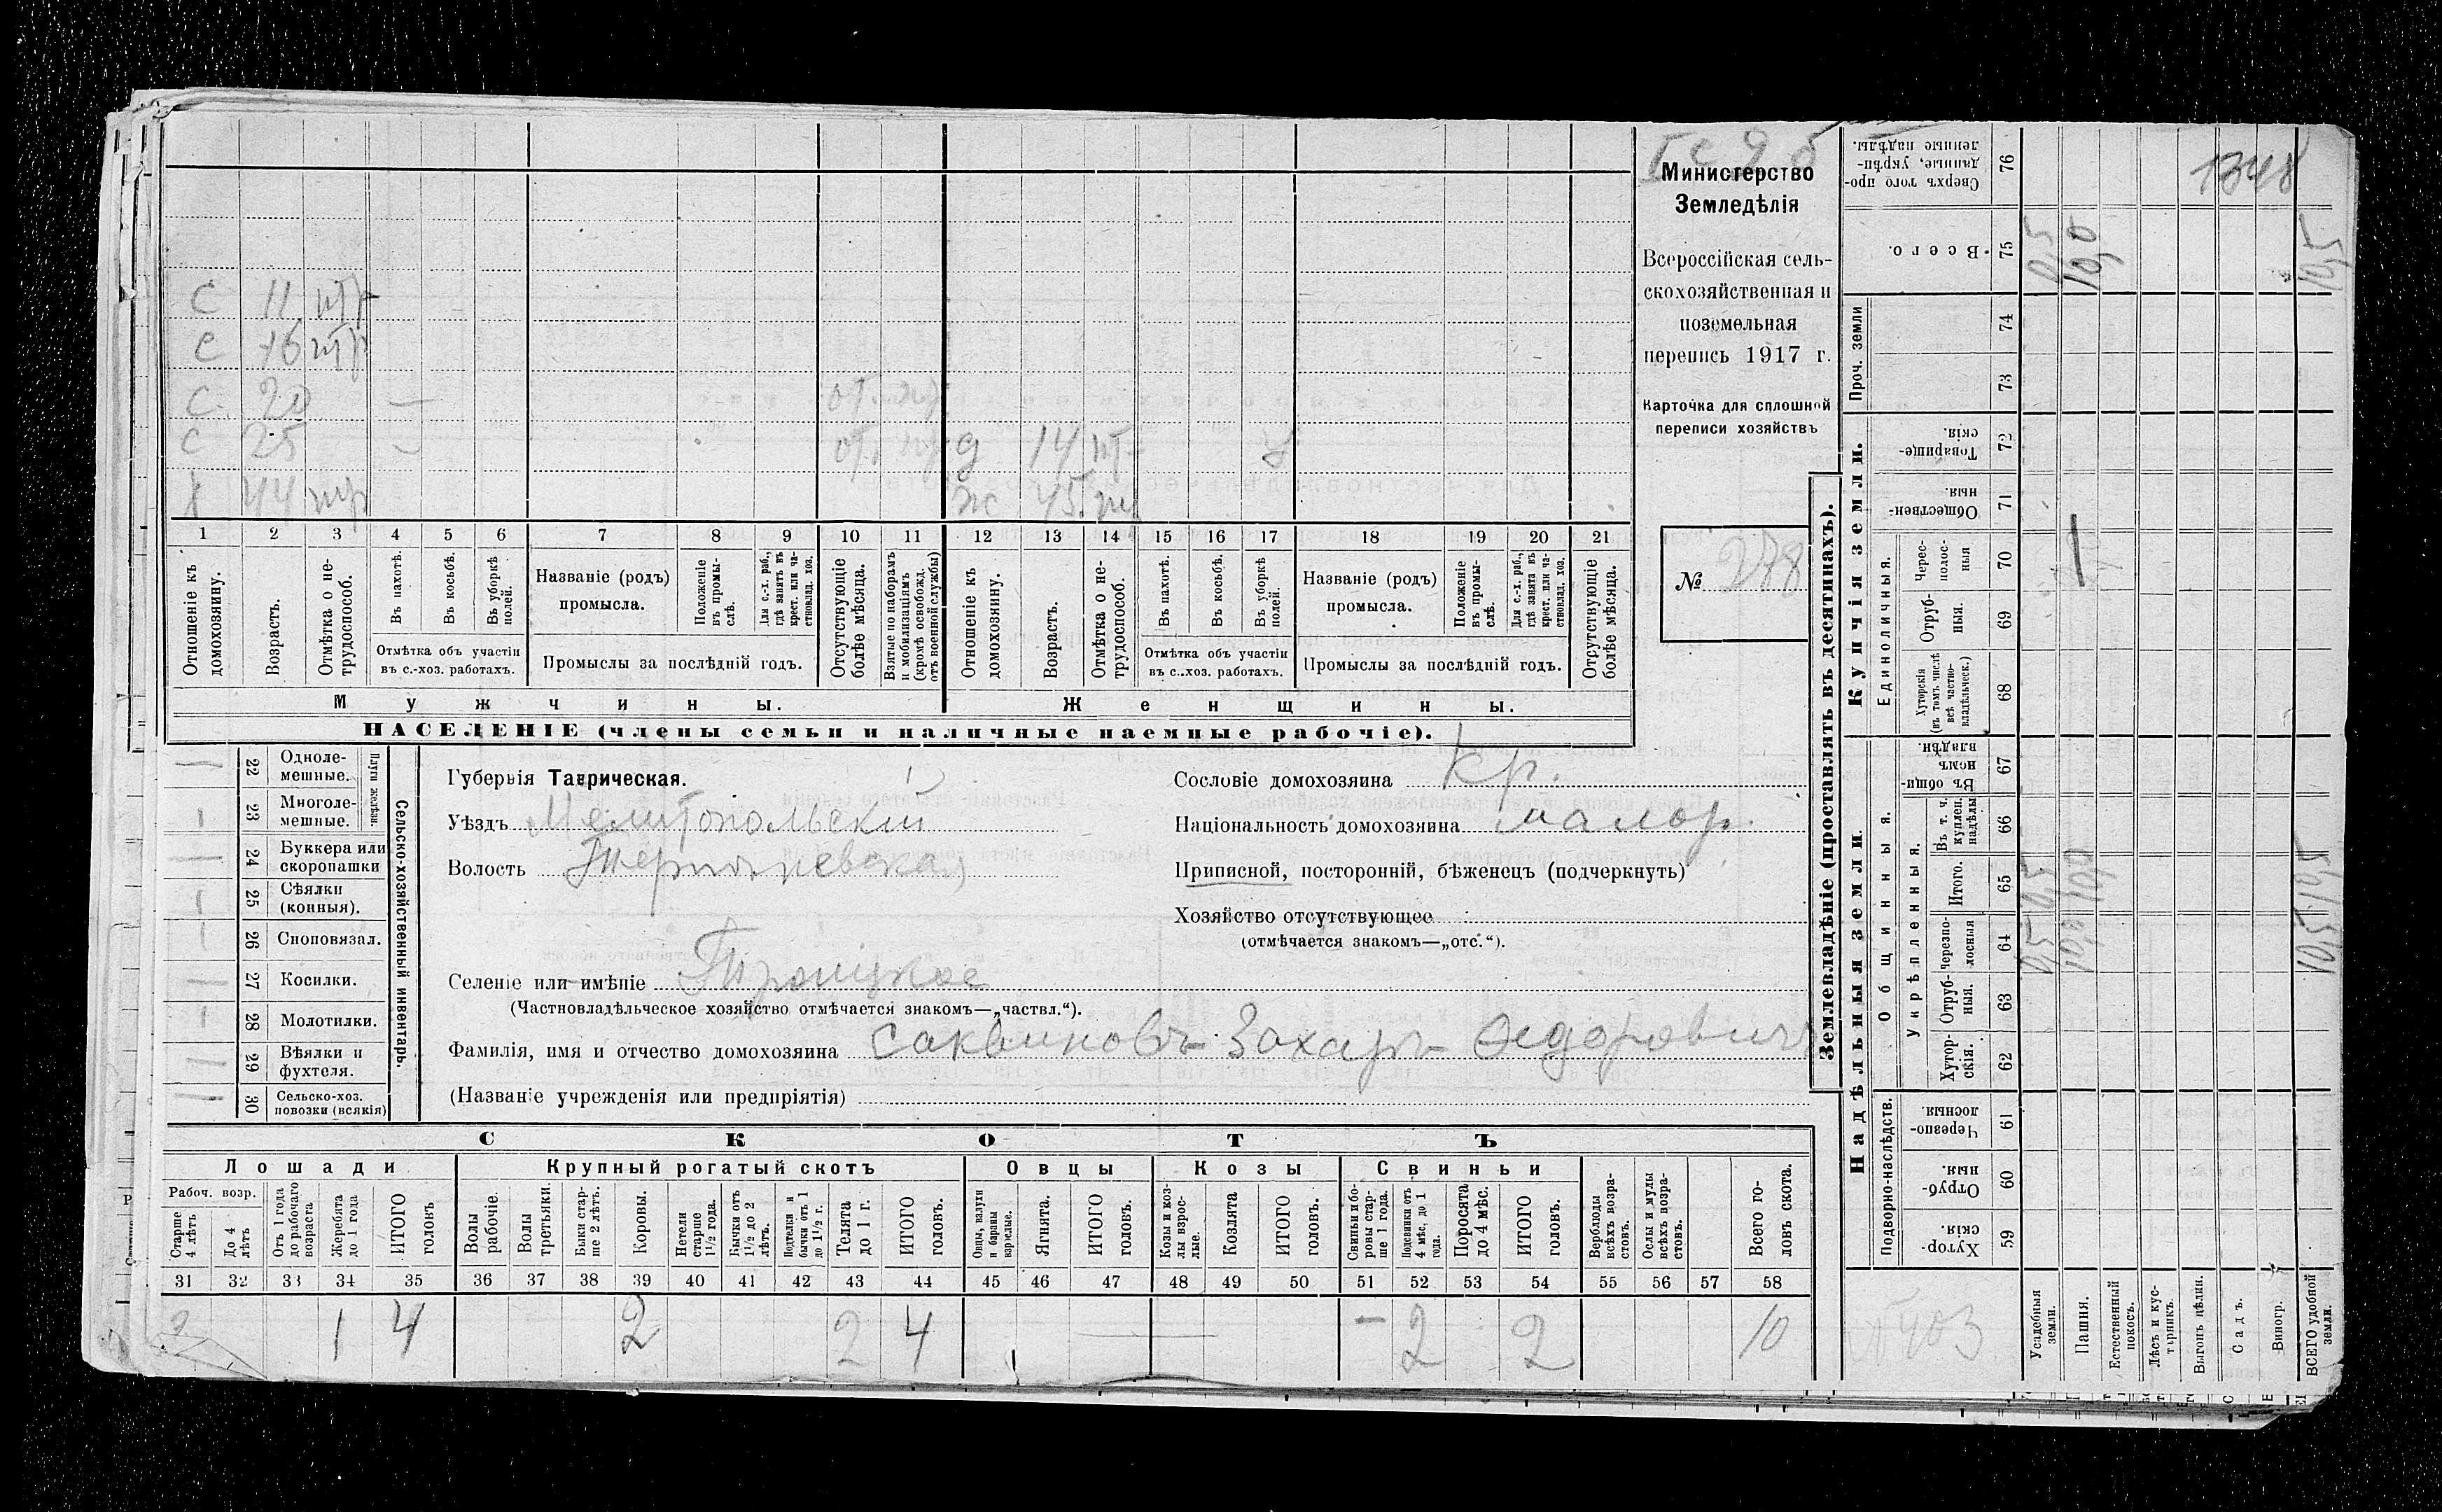 1348
Министерство
Земледѣлія
Всероссійская сель-
скохозяйственная и
поземельная
перепись 1917 г.
Карточка для сплошной
переписи хозяйствъ
№ 278
с 11 нтр
с 16 нтр
с. 20 —
с 25 —
х 44
д 14 нт
ж 45
1 2 3 4 5 6 7 8 9 10 11 12 13 14 15 16 17 18 19 20 21
Отношеніе къ домохозяину.
Возрастъ.
Отмѣтка о не-трудоспособ.
Въ пахотѣ.
Въ косьбѣ.
Въ уборкѣ полей.
Отмѣтка объ участіи
въ с.-хоз. работахъ.
Названіе (родъ)
промысла.
Положеніе въ промы-слѣ.
Для с.-х. раб., гдѣ занятъ въ крест. или ча-стновлад. хоз.
Промыслы за послѣдній годъ.
Отсутствующіе болѣе мѣсяца.
Взятые по наборамъ и мобилизаціямъ (кромѣ освобожд. отъ военной службы)
Отношеніе къ домохозяину.
Возрастъ.
Отмѣтка о не-трудоспособ.
Въ пахотѣ.
Въ косьбѣ.
Въ уборкѣ полей.
Отмѣтка объ участіи
въ с.-хоз. работахъ.
Названіе (родъ)
промысла.
Положеніе въ промы-слѣ.
Для с.-х. раб., гдѣ занята въ крест. или ча-стновлад. хоз.
Промыслы за послѣдній годъ.
Отсутствующіе болѣе мѣсяца.
Мужчины. Женщины.
НАСЕЛЕНІЕ (члены семьи и наличные наемные рабочіе).
22 Одноле-мешные.
23 Многоле-мешные.
Плуги желѣзн.
24 Буккера или скоропашки
25 Сѣялки (конныя).
26 Сноповязал.
27 Косилки.
28 Молотилки.
29 Вѣялки и фухтеля.
30 Сельско-хоз. повозки (всякія)
Сельско-хозяйственный инвентарь.
Губернія Таврическая.
Уѣздъ Мелитопольскій
Волость Терпѣніевская
Селеніе или имѣніе Троицкое
(Частновладѣльческое хозяйство отмѣчается знакомъ—„частвл.“).
Фамилія, имя и отчество домохозяина Саквиновъ Захаръ Ѳедоровичъ
(Названіе учрежденія или предпріятія)
Сословіе домохозяина Кр.
Національность домохозяина малор.
Приписной, посторонній, бѣженецъ (подчеркнуть)
Хозяйство отсутствующее
(отмѣчается знакомъ—„отс.“).
СКОТЪ
Лошади Крупный рогатый скотъ Овцы Козы Свиньи
Рабоч. возр.
Старше 4 лѣтъ
До 4 лѣтъ
Отъ 1 года до рабочаго возраста
Жеребята до 1 года
ИТОГО головъ
Волы рабочіе.
Волы третьяки.
Быки стар-ше 2 лѣтъ.
Коровы.
Нетели старше 1½ года.
Бычки отъ 1½ до 2 лѣтъ.
Подтелки и бычки отъ 1 до 1½ г.
Телята до 1 г.
ИТОГО головъ.
Овцы, валухи и бараны взрослые.
Ягнята.
ИТОГО головъ.
Козы и коз-лы взрос-лые.
Козлята
ИТОГО головъ.
Свиньи и бо-ровы стар-ше 1 года.
Подсвинки отъ 4 мѣс. до 1 года.
Поросята до 4 мѣс.
ИТОГО головъ.
Верблюды всѣхъ возра-стовъ.
Ослы и мулы всѣхъ возра-стовъ.
Всего го-ловъ скота.
31 32 33 34 35 36 37 38 39 40 41 42 43 44 45 46 47 48 49 50 51 52 53 54 55 56 57 58
2 1 4 2 2 4 — 2 2 10
Землевладѣніе (проставлять въ десятинахъ).
Купчія земли.
Надѣльныя земли
Сверхъ того про-данные, укрѣп-ленные надѣлы. 76
Всего. 75 0,5 10,0 10,5
Проч. земли 74
73
Товарище-скія. 72
Обществен-ныя. 71
Единоличныя.
Черес-полос-ныя 70
Отруб-ныя. 69
Хуторскія (въ томъ числѣ всѣ частно-владѣльческ.) 68
Общинныя.
Въ общин-номъ владѣн. 67
Въ т. ч. куплен. надѣлы 66
Укрѣпленныя.
Итого. 65 0,5 10,0 10,5
Черезпо-лосныя 64 0,5 10,0 10,5
Отруб-ныя. 63
Хутор-скія. 62
Подворно-наслѣдств.
Черезпо-лосныя 61
Отруб-ныя. 60
Хутор-скія. 59
403
Усадебныя земли.
Пашня.
Естественный покосъ.
Лѣсъ и кус-тарникъ.
Выгонъ цѣлин.
Садъ.
Виногр.
ВСЕГО удобной земли.